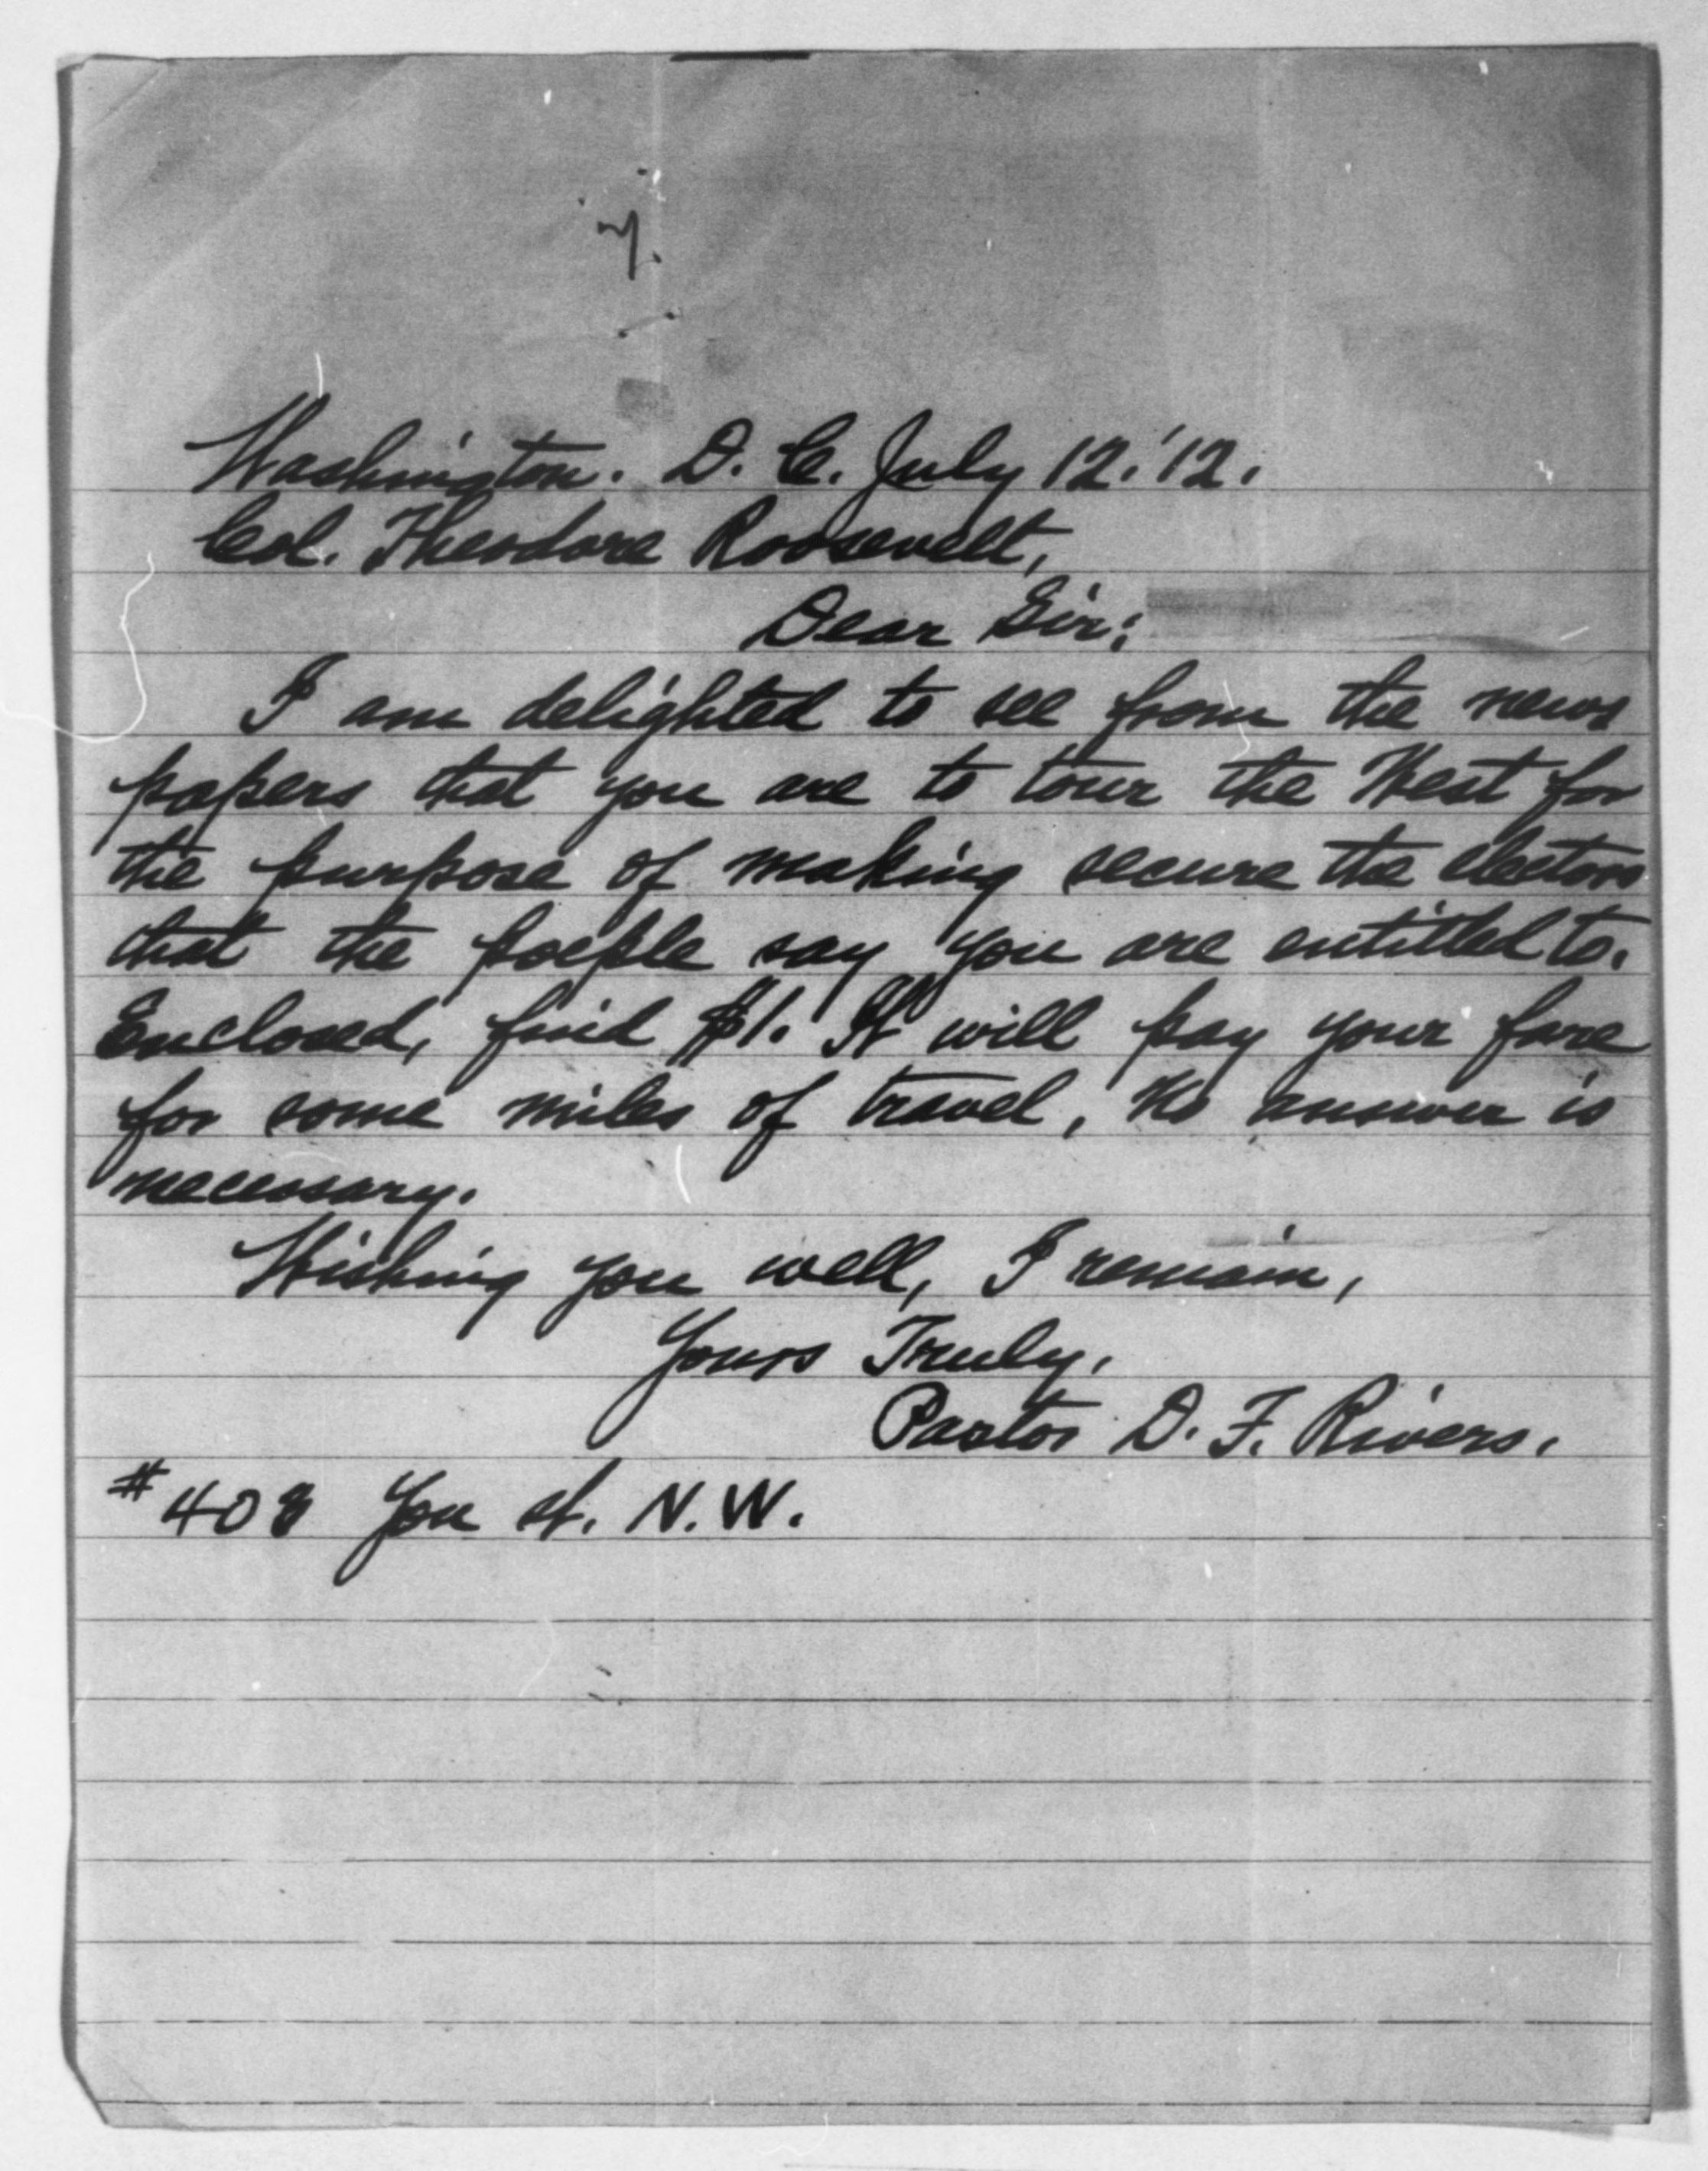 Washington. D. C. July 12. '12.
Col. Theodore Roosevelt,
Dear Sir:
I am delighted to see from the news
papers that you are to tour the West for
the purpose of making secure the electors
that the poeple say you are entitled to.
Enclosed, find $1. It will pay your fare
for some miles of travel, No answer is
necessary.
Wishing you well, I remain,
Yours Truly,
Pastor D. F. Rivers.
#408 You st. N.W.